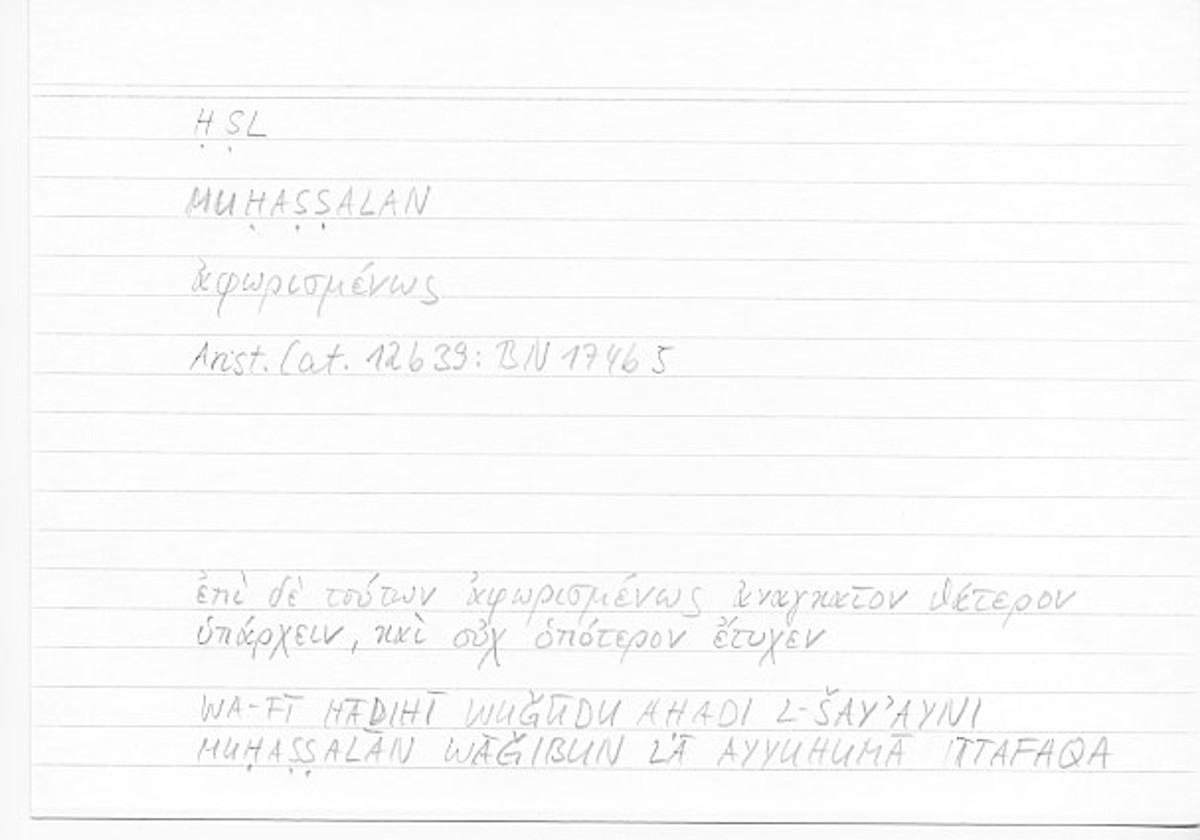 ḤṢL
MUḤAṢṢALAN
ἀφωρισμένως
Arist. Cat. 12b39: BN 174b5
ἐπὶ δὲ τούτων ἀφωρισμένως ἀναγκαῖον θάτερον
ὑπάρχειν, καὶ οὐχ ὁπότερον ἔτυχεν
WA-FĪ HĀḎIHĪ WUǦŪDU AḤADI L-ŠAYʾAYNI
MUḤAṢṢALAN WĀǦIBUN LĀ AYYUHUMĀ ITTAFAQA